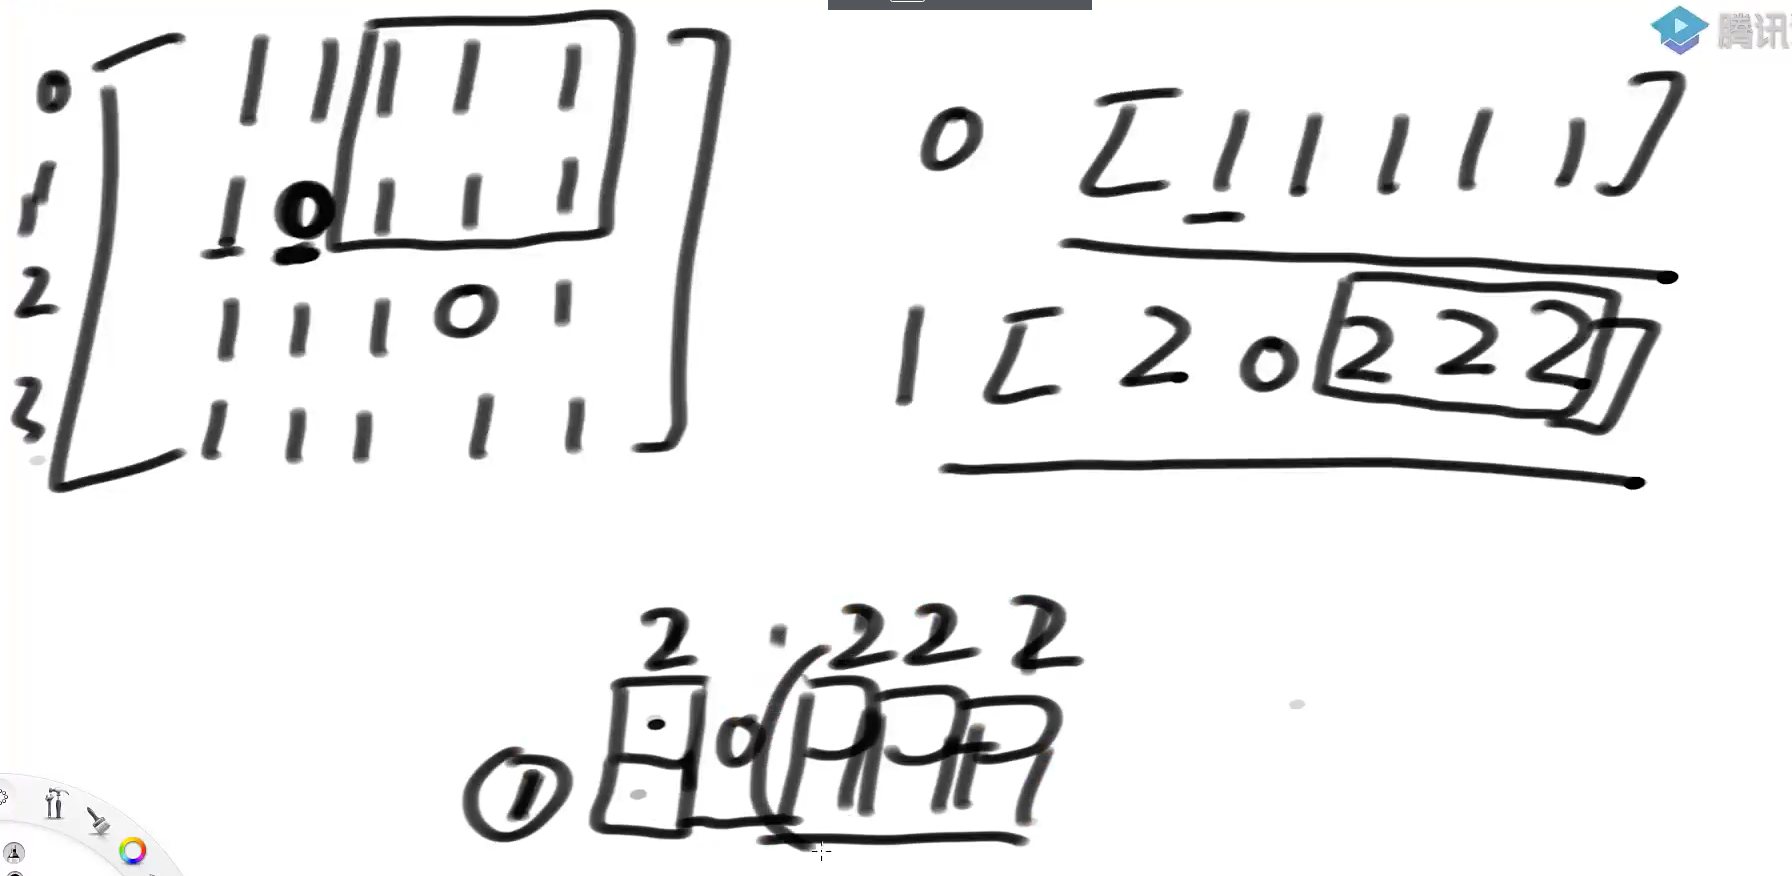 腾讯
0 1 1 1 1 1
1 1 0 1 1 1
2 1 1 1 0 1
3 1 1 1 1 1
0 [ 1 1 1 1 1 ]
1 [ 2 0 2 2 2 ]
2 2 2 2
① 0